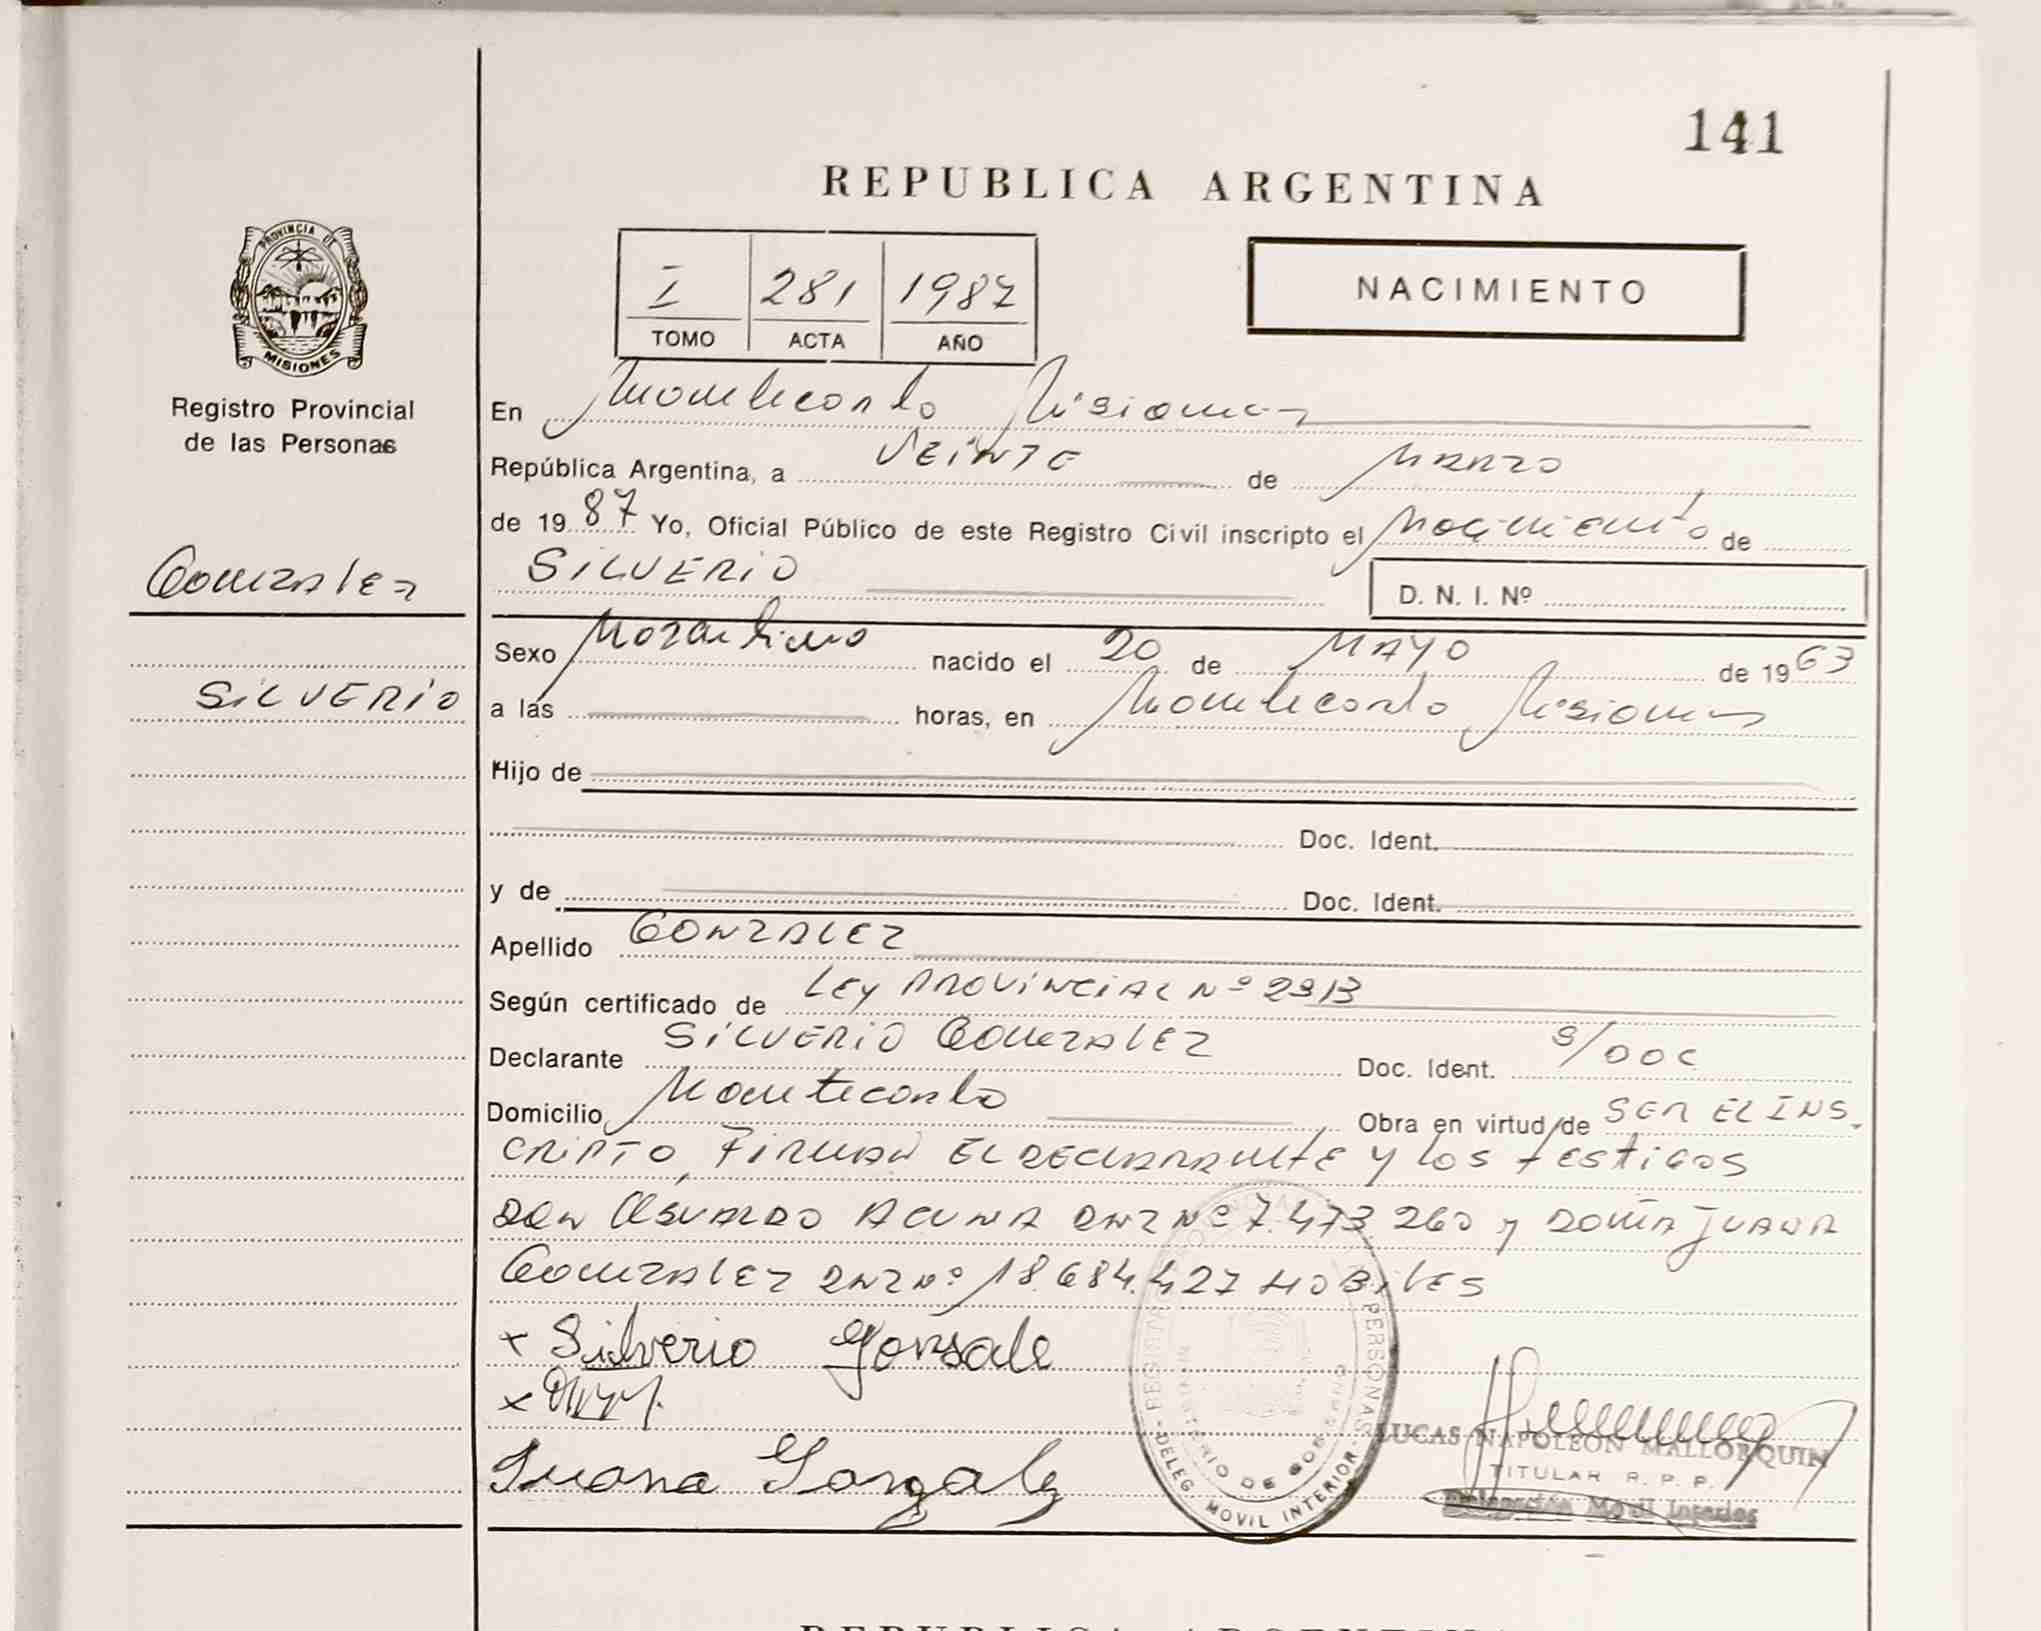 141
REPUBLICA ARGENTINA
PROVINCIA DE
MISIONES
Registro Provincial
de las Personas
I 281 1987
TOMO ACTA AÑO
NACIMIENTO
En Montecarlo Misiones
República Argentina, a VEINTE de MARZO
de 1987 Yo, Oficial Público de este Registro Civil inscripto el Nacimiento de
Gonzalez
SILVERIO D. N. I. Nº
Sexo Masculino nacido el 20 de MAYO de 1963
SILVERIO
a las horas, en Montecarlo Misiones
Hijo de
Doc. Ident.
y de Doc. Ident.
Apellido GONZALEZ
Según certificado de LEY PROVINCIAL Nº 2913
Declarante SILVERIO GONZALEZ Doc. Ident. S/DOC
Domicilio Montecarlo Obra en virtud de SER EL INS.
CRIPTO, FIRMAN EL DECLARANTE Y LOS TESTIGOS
DON OSVALDO ACUNA DNI Nº 7.473.260 y DOÑA JUANA
GONZALEZ DNI Nº 18.684.427 HOBILES
x Silverio Gonsale
x
Juana Gonzalz
REGISTRO PROVINCIAL PERSONAS
MINISTERIO DE GOBIERNO
DELEG. MOVIL INTERIOR
LUCAS NAPOLEON MALLORQUIN
TITULAR R. P. P.
Delegación Movil Interior
REPUBLICA ARGENTINA